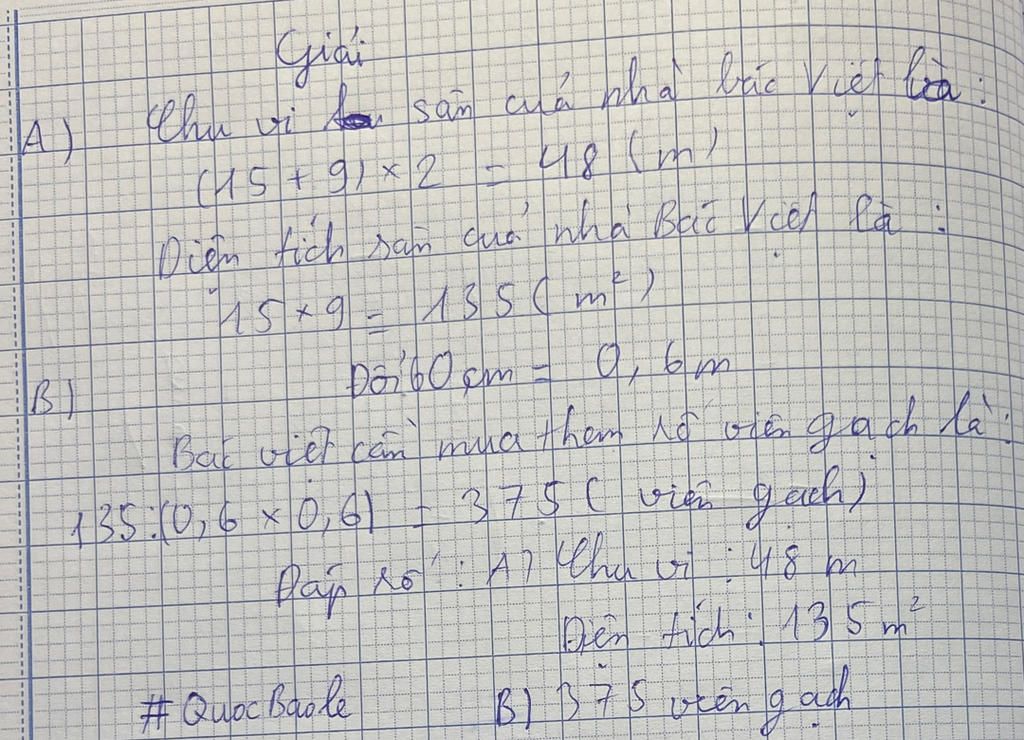 Giải
A) Chu vi sân của nhà bác Việt là:
(15 + 9) × 2 = 48 (m)
Diện tích sân của nhà Bác Việt là:
15 × 9 = 135 (m²)
B) Đổi 60 cm = 0,6 m
Bác việt cần mua thêm số viên gạch là:
135:(0,6 × 0,6) = 375 (viên gạch)
Đáp số: A) Chu vi: 48 m
Diện tích: 135 m²
#QuocBaole B) 375 viên gạch